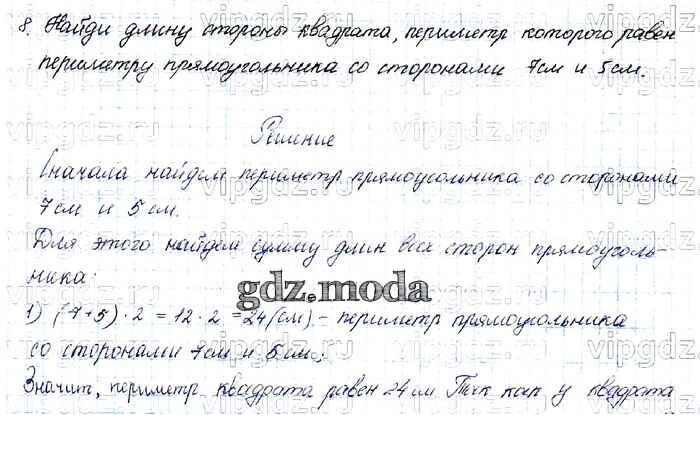 8. Найди длину стороны квадрата, периметр которого равен
периметру прямоугольника со сторонами 7см и 5см.
Решение
Сначала найдем периметр прямоугольника со сторонами
7см и 5см.
Для этого найдем сумму длин всех сторон прямоуголь-
ника:
gdz.moda
1) (7+5)·2 = 12·2 = 24(см) - периметр прямоугольника
со сторонами 7см и 5см;
Значит, периметр квадрата равен 24см. Так как у квадрата
vipgdz.ru